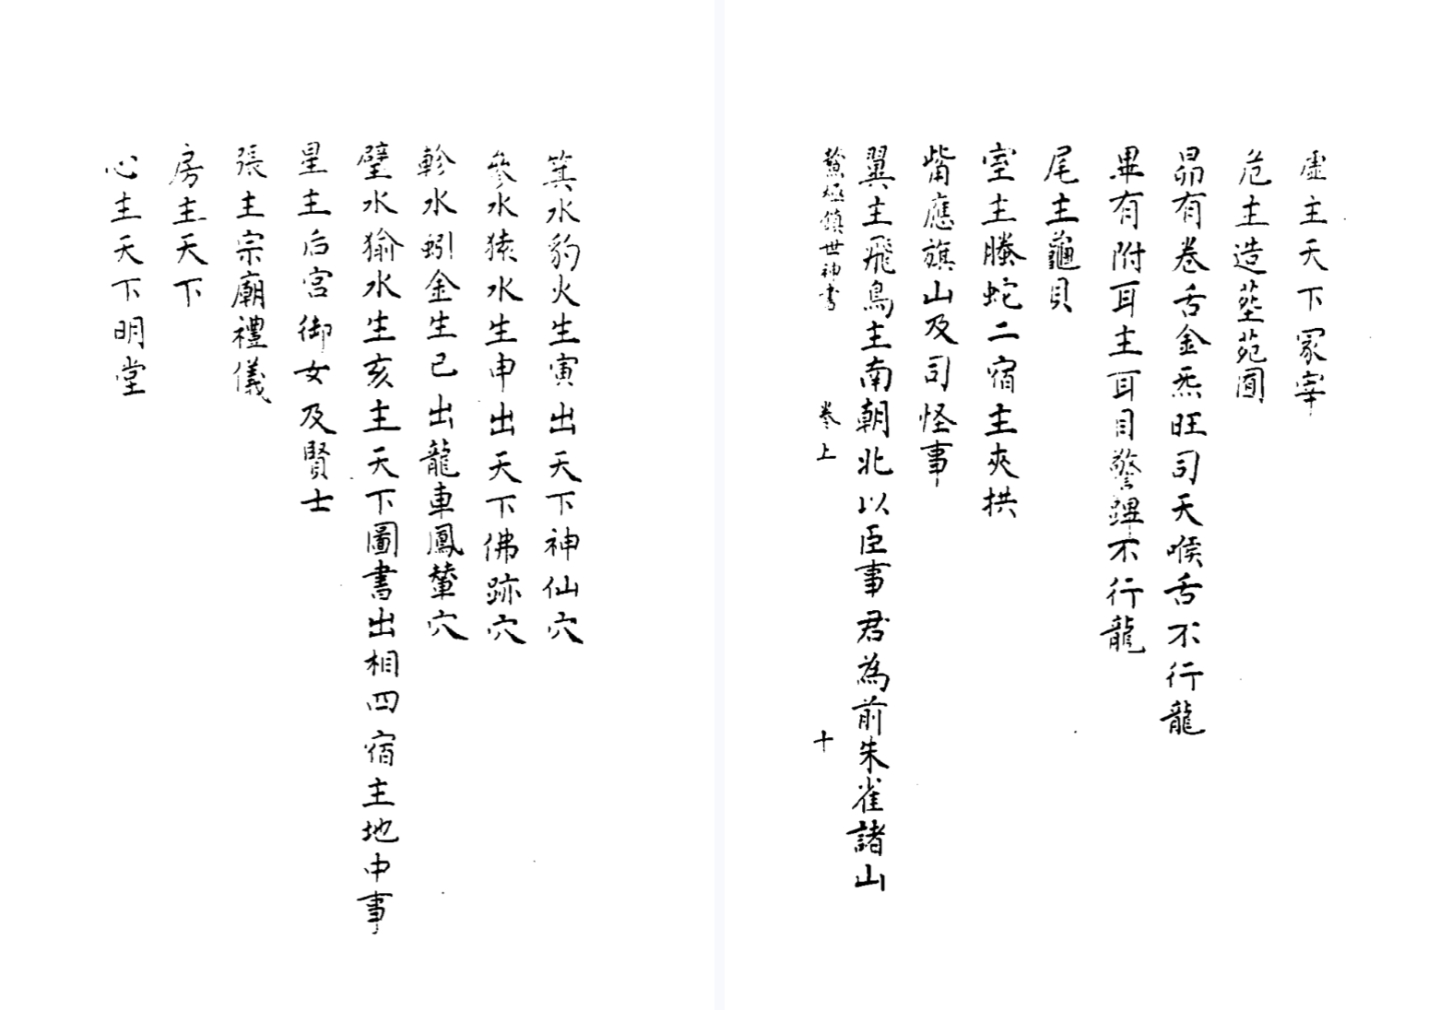 虛主天下冢宰
危主造塋苑囿
昴有卷舌金炁旺司天喉舌不行龍
畢有附耳主耳目警蹕不行龍
尾主龜貝
室主螣蛇二宿主夾拱
觜應旗山及司怪事
翼主飛鳥主南朝北以臣事君為前朱雀諸山
鰲極鎮世神書 卷上 十
箕水豹火生寅出天下神仙穴
參水猿水生申出天下佛跡穴
軫水蚓金生巳出龍車鳳輦穴
壁水㺄水生亥主天下圖書出相四宿主地中事
星主后宮御女及賢士
張主宗廟禮儀
房主天下
心主天下明堂